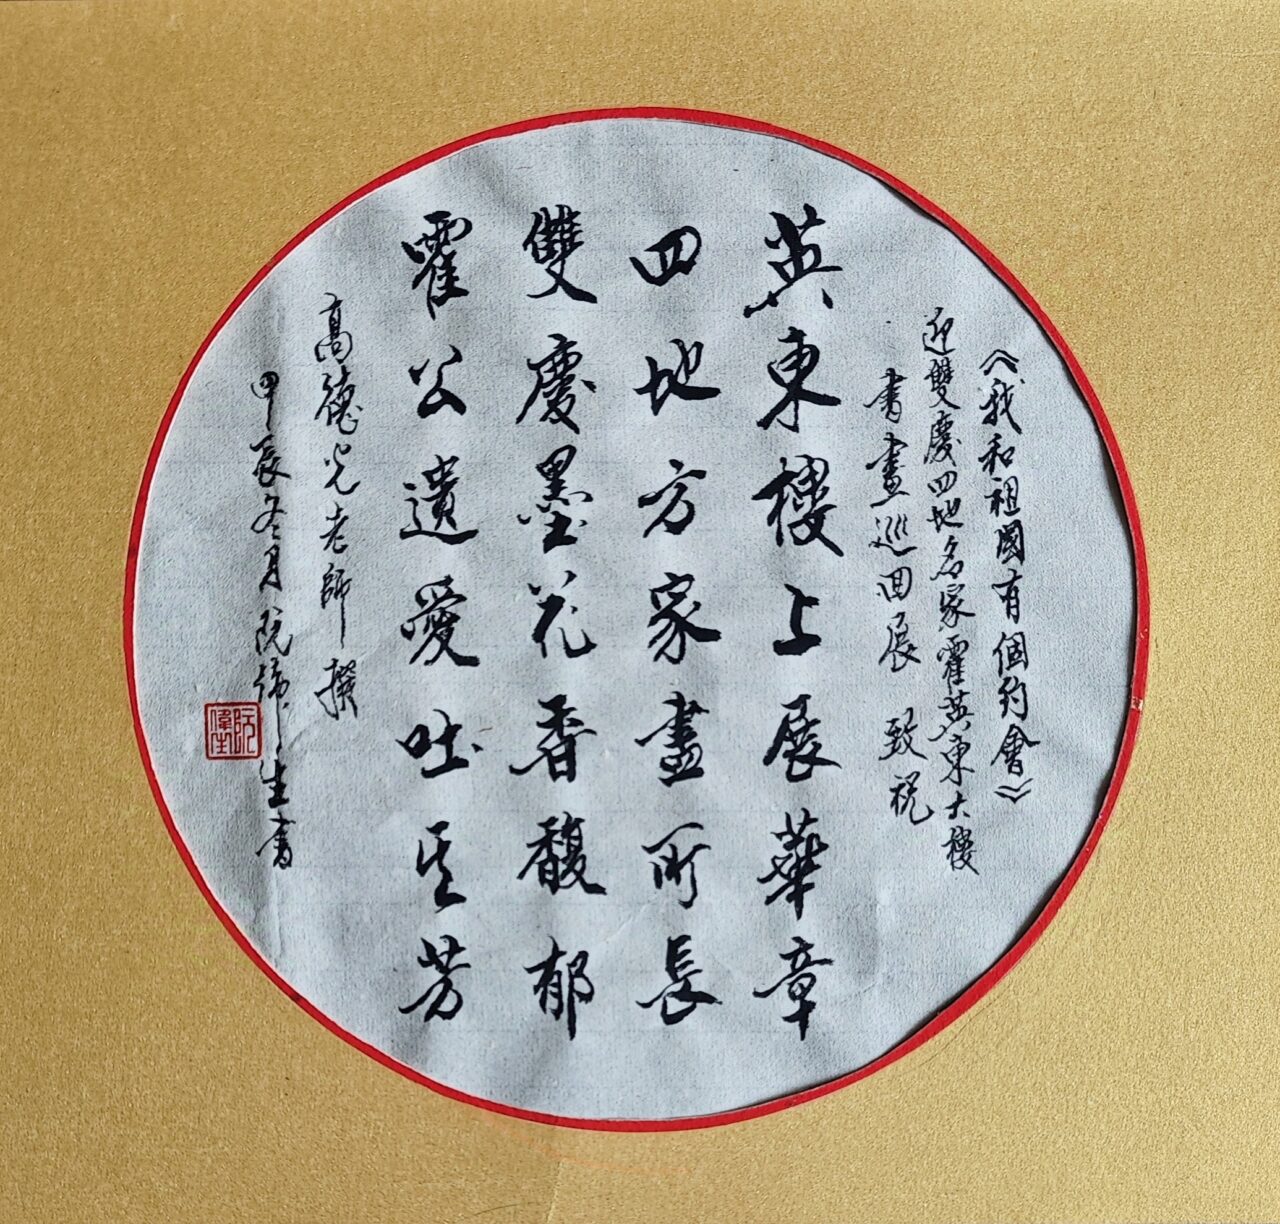 《我和祖國有個約會》
迎雙慶四地名家霍英東大樓
書畫巡回展 致祝
英東樓上展華章
四地方家畫所長
雙慶墨花香馥郁
霍公遺愛吐芬芳
高德光老師 撰
甲辰冬月阮偉生書
阮偉生